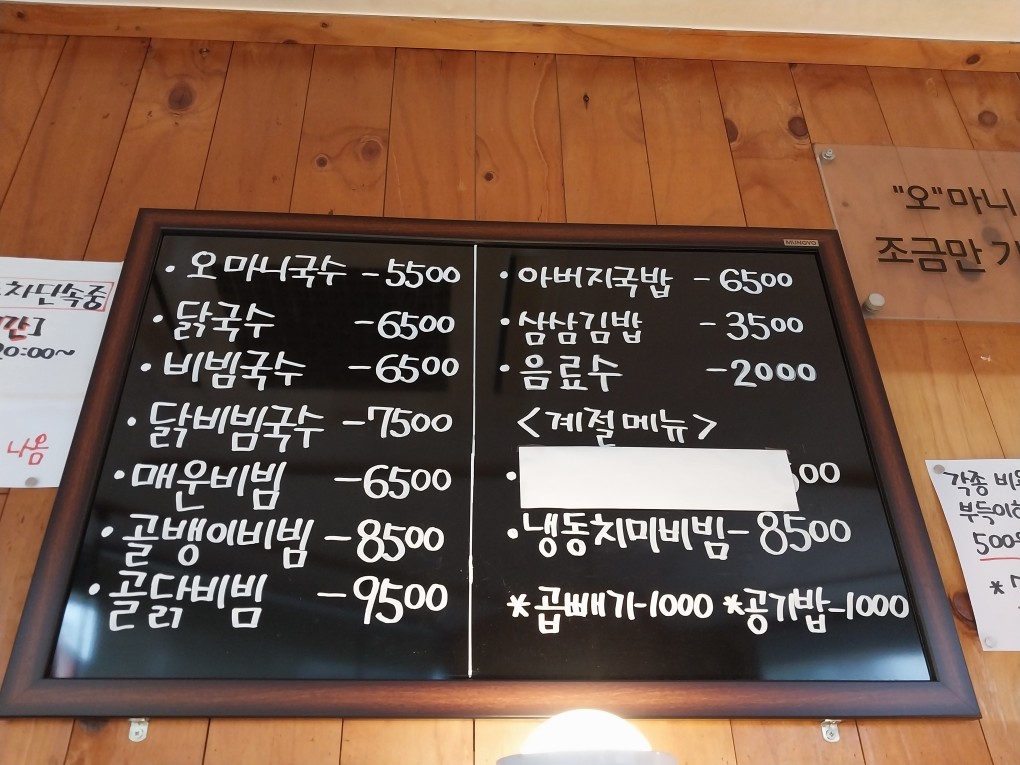 · 오마니국수 -5500
· 닭국수 -6500
· 비빔국수 -6500
· 닭비빔국수 -7500
· 매운비빔 -6500
· 골뱅이비빔 -8500
· 골닭비빔 -9500
· 아버지국밥 -6500
· 삼삼김밥 -3500
· 음료수 -2000
<계절메뉴>
· 00
· 냉동치미비빔-8500
*곱빼기-1000 *공기밥-1000
MUNGYO
"오"마니
조금만 기
차단속중
20:00~
나옴
각종 비
부득이하
500
*